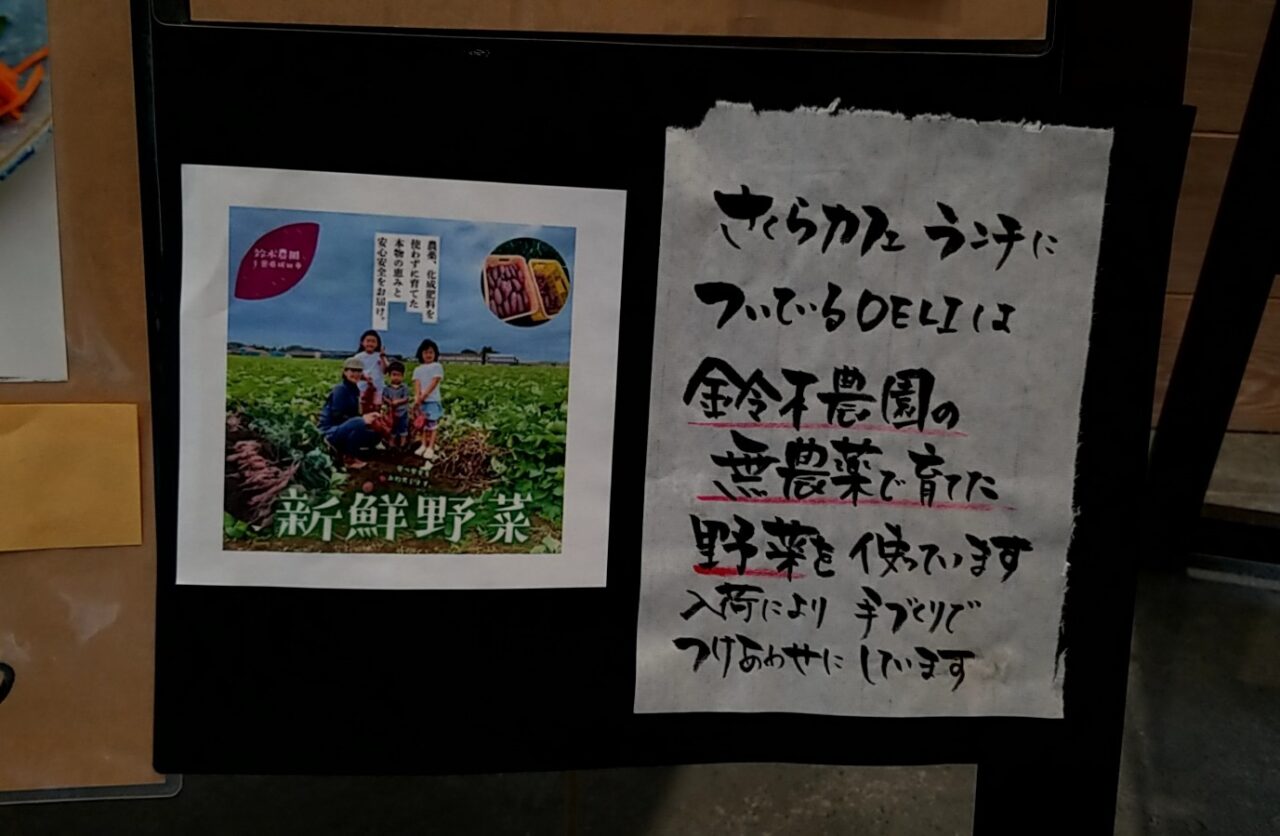 鈴木農園
農薬、化成肥料を
使わずに育てた
本物の恵みと
安心安全をお届け。
新鮮野菜
さくらカフェ ランチに
ついているDELIは
鈴木農園の
無農薬で育てた
野菜を使っています
入荷により 手づくりで
つけあわせにしています